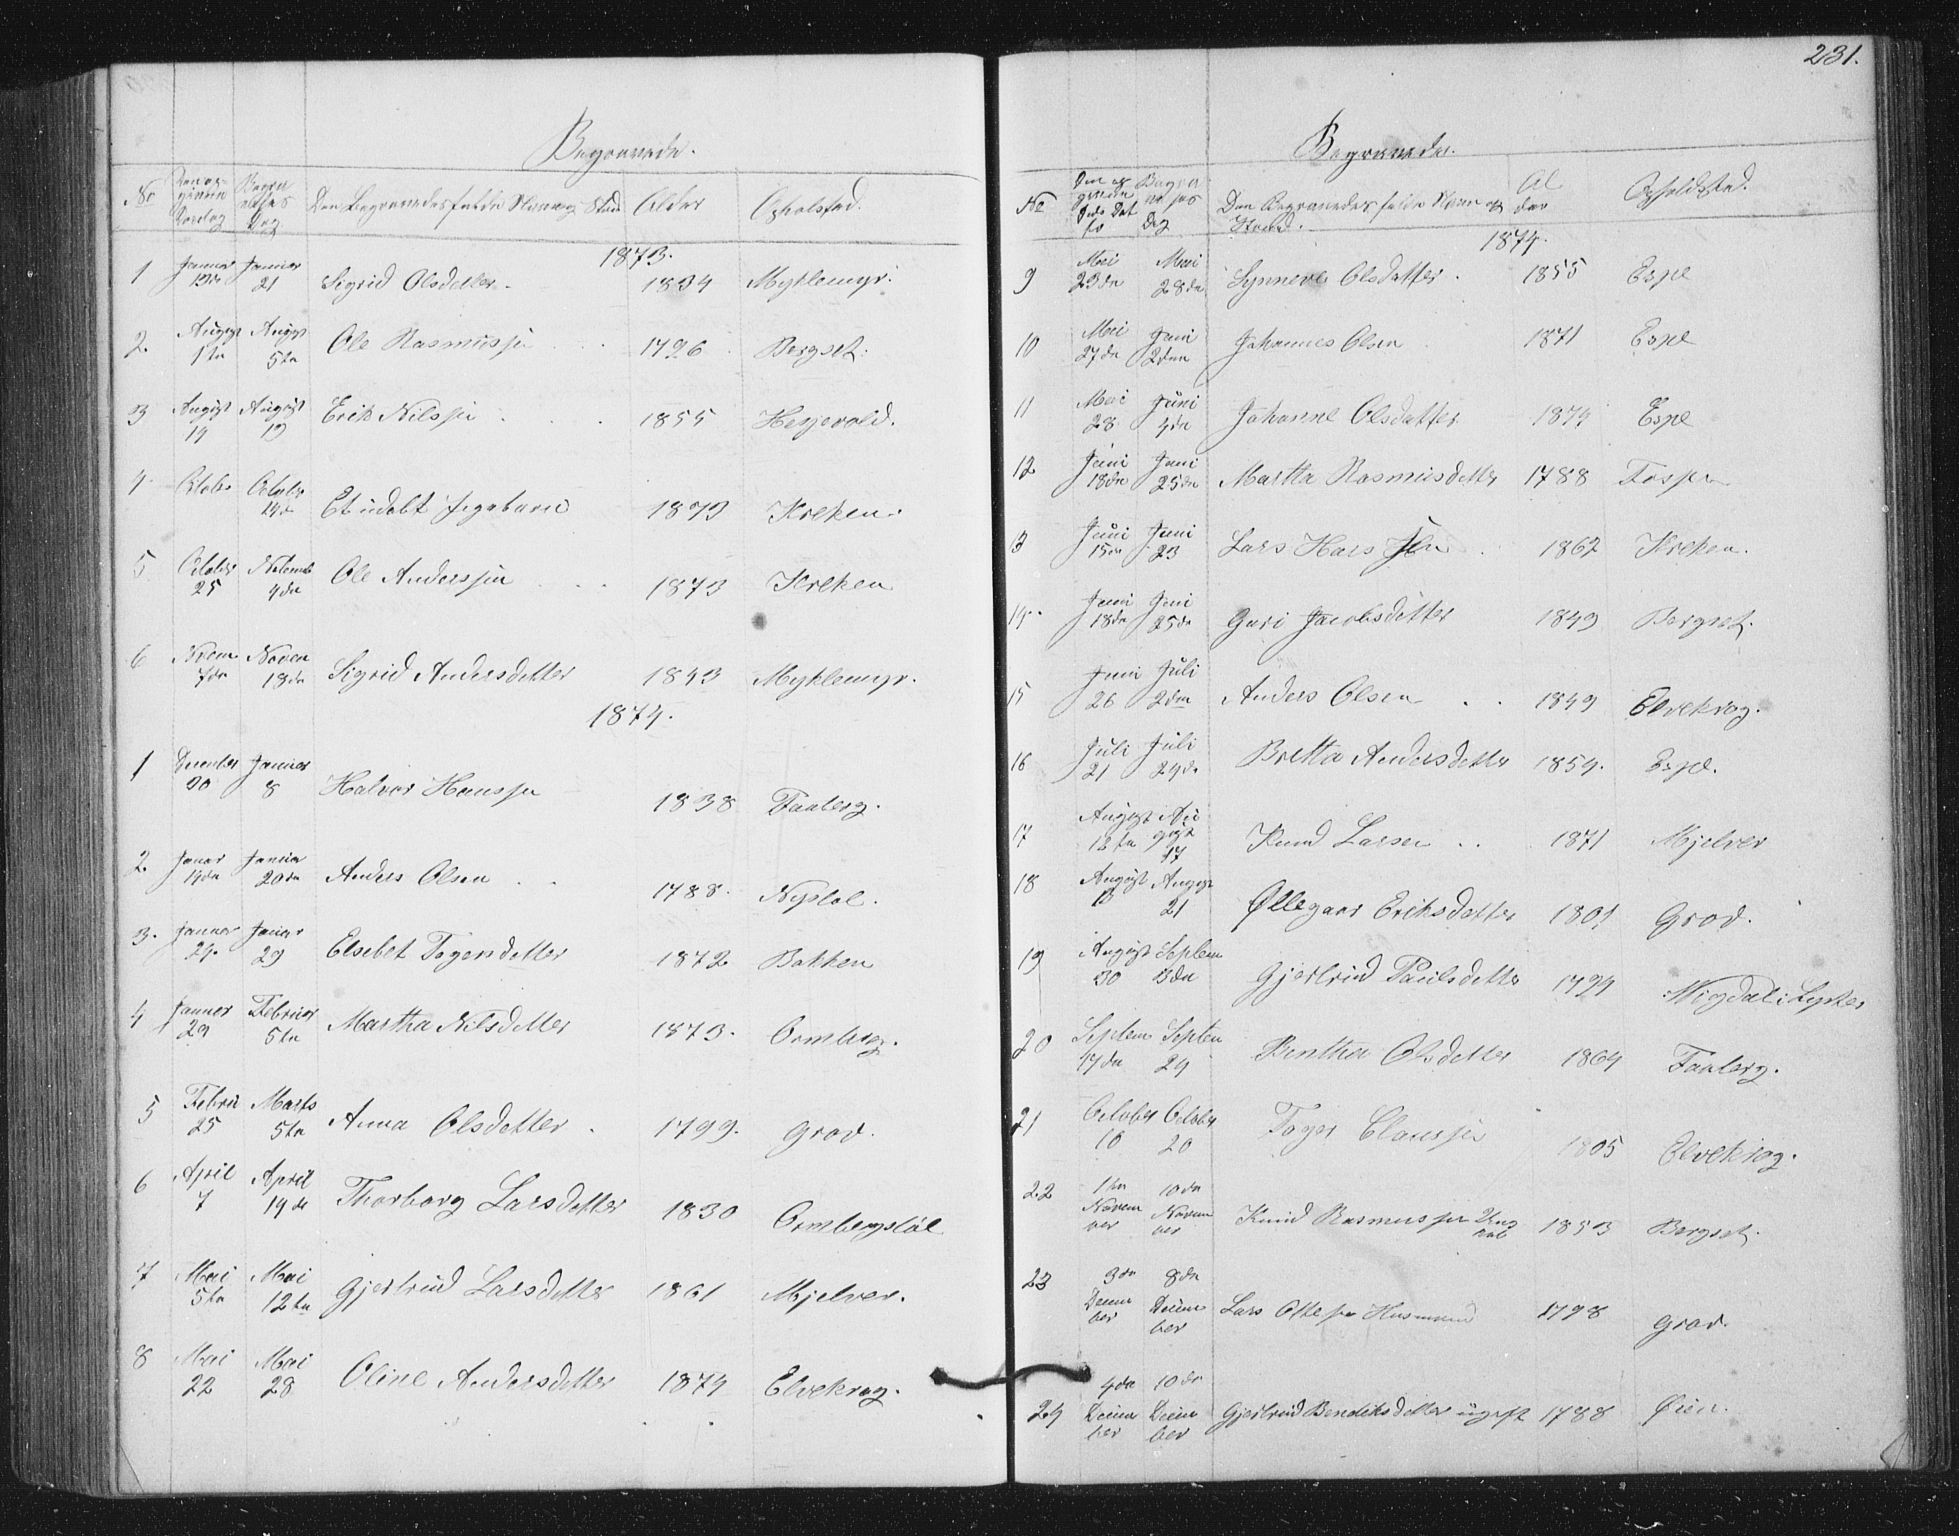 231.
Begravede.
No Den opgivne Dødsdag Begravelses Dag Den Begravedes fulde Navn og Stand Alder Opholsted.
1873.
1 Januar 13de Januar 21 Sigrid Olsdatter. 1834 Myklemyr.
2. August 1te August 5te Ole Rasmussen 1796 Bergset.
3 August 14 August 19 Erik Nilssen 1855 Hesjevold.
4 October October 14de Et udøbt Pigebarn 1873 Kreken.
5 October 25 Novemb 4de Ole Anderssen 1873 Kreken
6 Novem 7de Noven 13de Sigrid Andersdatter 1843 Myklemyr.
1874.
1 December 30 Januar 8 Halvor Hanssen 1838 Faaberg.
2. Januar 14de Januar 20de Anders Olsen 1788. Nystøl.
3. Januar 24. Januar 29 Elsebet Togersdatter 1872 Bakken
4 Januar 29 Februar 5te Martha Nilsdatter 1873. Ormberg.
5 Febru 25 Marts 5te Anna Olsdatter. 1799. Grov.
6 April 7 April 14de Thorborg Larsdatter 1830 Ormbergstøl
7 Mai 5te Mai 12te Gjertrud Larsdatter 1861 Mjelver.
8 Mai 22 Mai 28 Oline Andersdatter 1874 Elvekrog.
Begravede.
No Den opgivne Døds Dato Begravelses Dag Den Begravedes fulde Navn og Stand. Alder Opholdsted.
1874.
9 Mai 23de Mai 28de Synneve Olsdatter. 1855 Espe
10 Mai 27de Juni 2den Johannes Olsen 1871 Espe
11 Mai 28 Juni 4de Johanne Olsdatter 1874 Espe
12 Juni 18de Juni 25de Martha Rasmusdatter 1788
13 Juni 15de Juni 23 Lars Hans Sen 1862 Kreken.
14. Juni 18de Juni 25de Guri Jacobsdatter 1849 Bergset.
15 Juni 26 Juli 2den Anders Olsen 1849 Elvekrog.
16 Juli 21 Juli 29de Britta Andersdatter 1854. Espe.
17 August 12te August 17 Knud Larsen 1871 Mjelver
18 August 13 August 21 Øllegaar Eriksdatter 1801 Grov.
19 August 30 Septem 3de Gjertrud Paulsdatter 1794 Migdal i Lyster
20 Septem 17de Septem 24 Bentha Olsdatter 1864 Faaberg.
21 October 16 October 20 Toger Claussen 1805 Elvekrog.
22 1ste November 10de November Knud Rasmussen 1853 Bergset.
23 3de December 8de December Lars Ottesen Husmand 1798 Grov.
24 4de December 10de December Gjertrud Bendiksdatter ugift 1788 Øien.